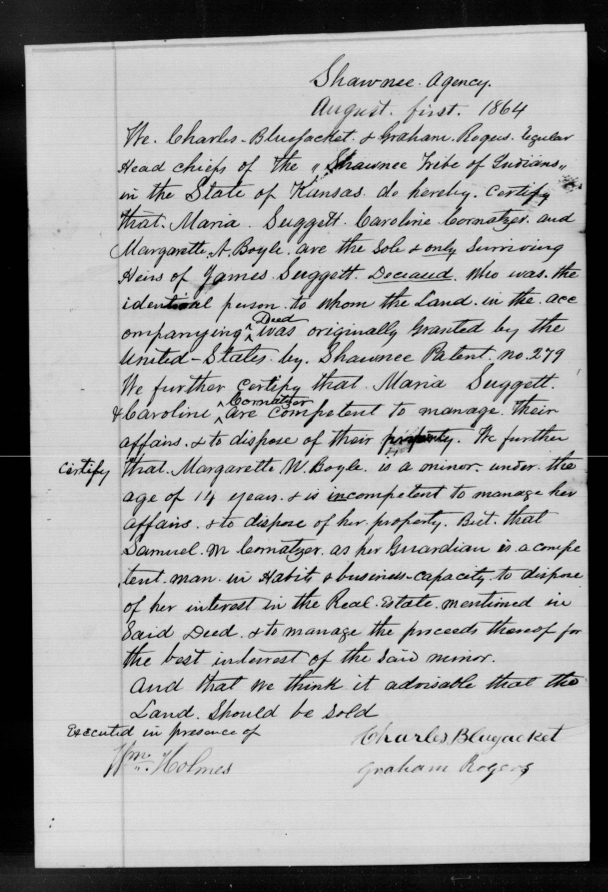 Shawnee Agency.
August. first. 1864
We. Charles Bluejacket. & Graham. Rogers. regular
Head chiefs of the "Shawnee Tribe of Indians"
in the State of Kansas. do hereby. certify
that. Maria. Suggett. Caroline. Cornatzer. and
Margarette. A. Boyle. are the Sole & only Surviving
Heirs of James. Suggett. Deceased. who was. the
identical person. to whom the Land. in the. acc
ompanying Deed was originally Granted by the
United-States. by. Shawnee Patent. no. 279
We further certify that. Maria Suggett.
& Caroline Cornatzer are competent to manage. their
affairs. & to dispose of their property. We further
certify that. Margarette W. Boyle. is a minor. under. the
age of 14 years. & is incompetent to manage her
affairs. & to dispose of her property. But. that
Samuel. M Cornatzer. as her Guardian is a compe
tent. man. in Habits & business-capacity. to dispose
of her interest in the Real. Estate. mentioned in
Said Deed. & to manage the proceeds thereof for
the best interest of the said minor.
And that we think it advisable that the
Land. Should be Sold
Executed in presence of
Charles Bluejacket
Wm. Holmes
Graham Rogers